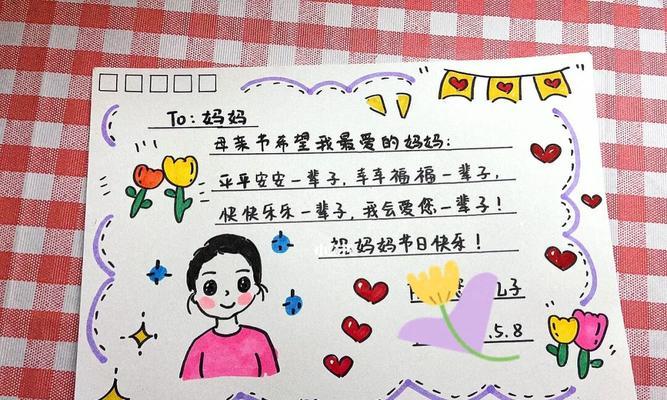 To: 妈妈
母亲节希望我最爱的妈妈:
平平安安一辈子,幸幸福福一辈子,
快快乐乐一辈子,我会爱您一辈子!
祝妈妈节日快乐!
儿子
.5.8